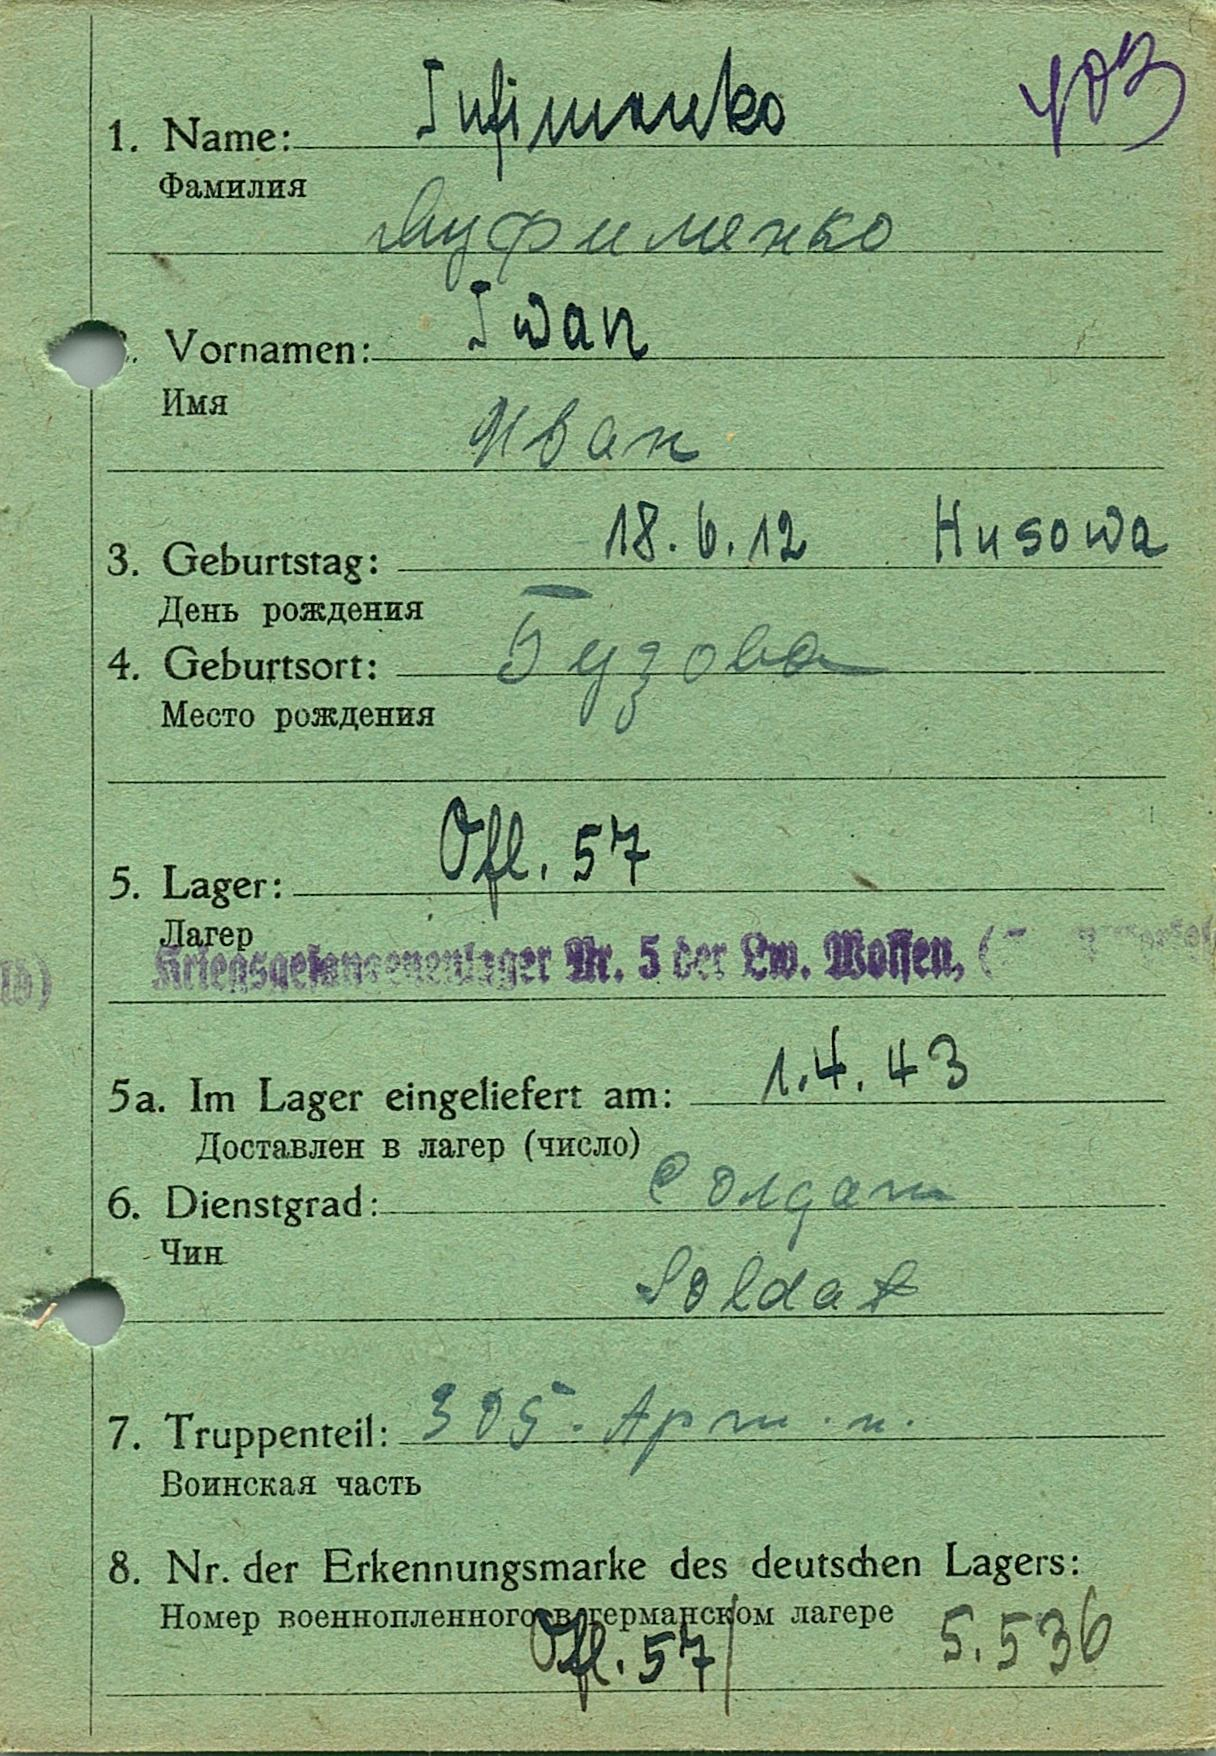 403
1. Name: Tufimenko
Фамилия
Туфименко
Vornamen: Iwan
Имя
Иван
3. Geburtstag: 18.6.12 Husowa
День рождения
4. Geburtsort: Гузова
Место рождения
5. Lager: Ofl. 57
Лагер
Kriegsgefangenenlager Nr. 5 der Lw. Wolfen, (
5a. Im Lager eingeliefert am: 1.4.43
Доставлен в лагер (число)
6. Dienstgrad: Солдат
Чин
Soldat
7. Truppenteil: 305. Арт. п.
Воинская часть
8. Nr. der Erkennungsmarke des deutschen Lagers:
Номер военнопленного в германском лагере
Ofl. 57/ 5.536